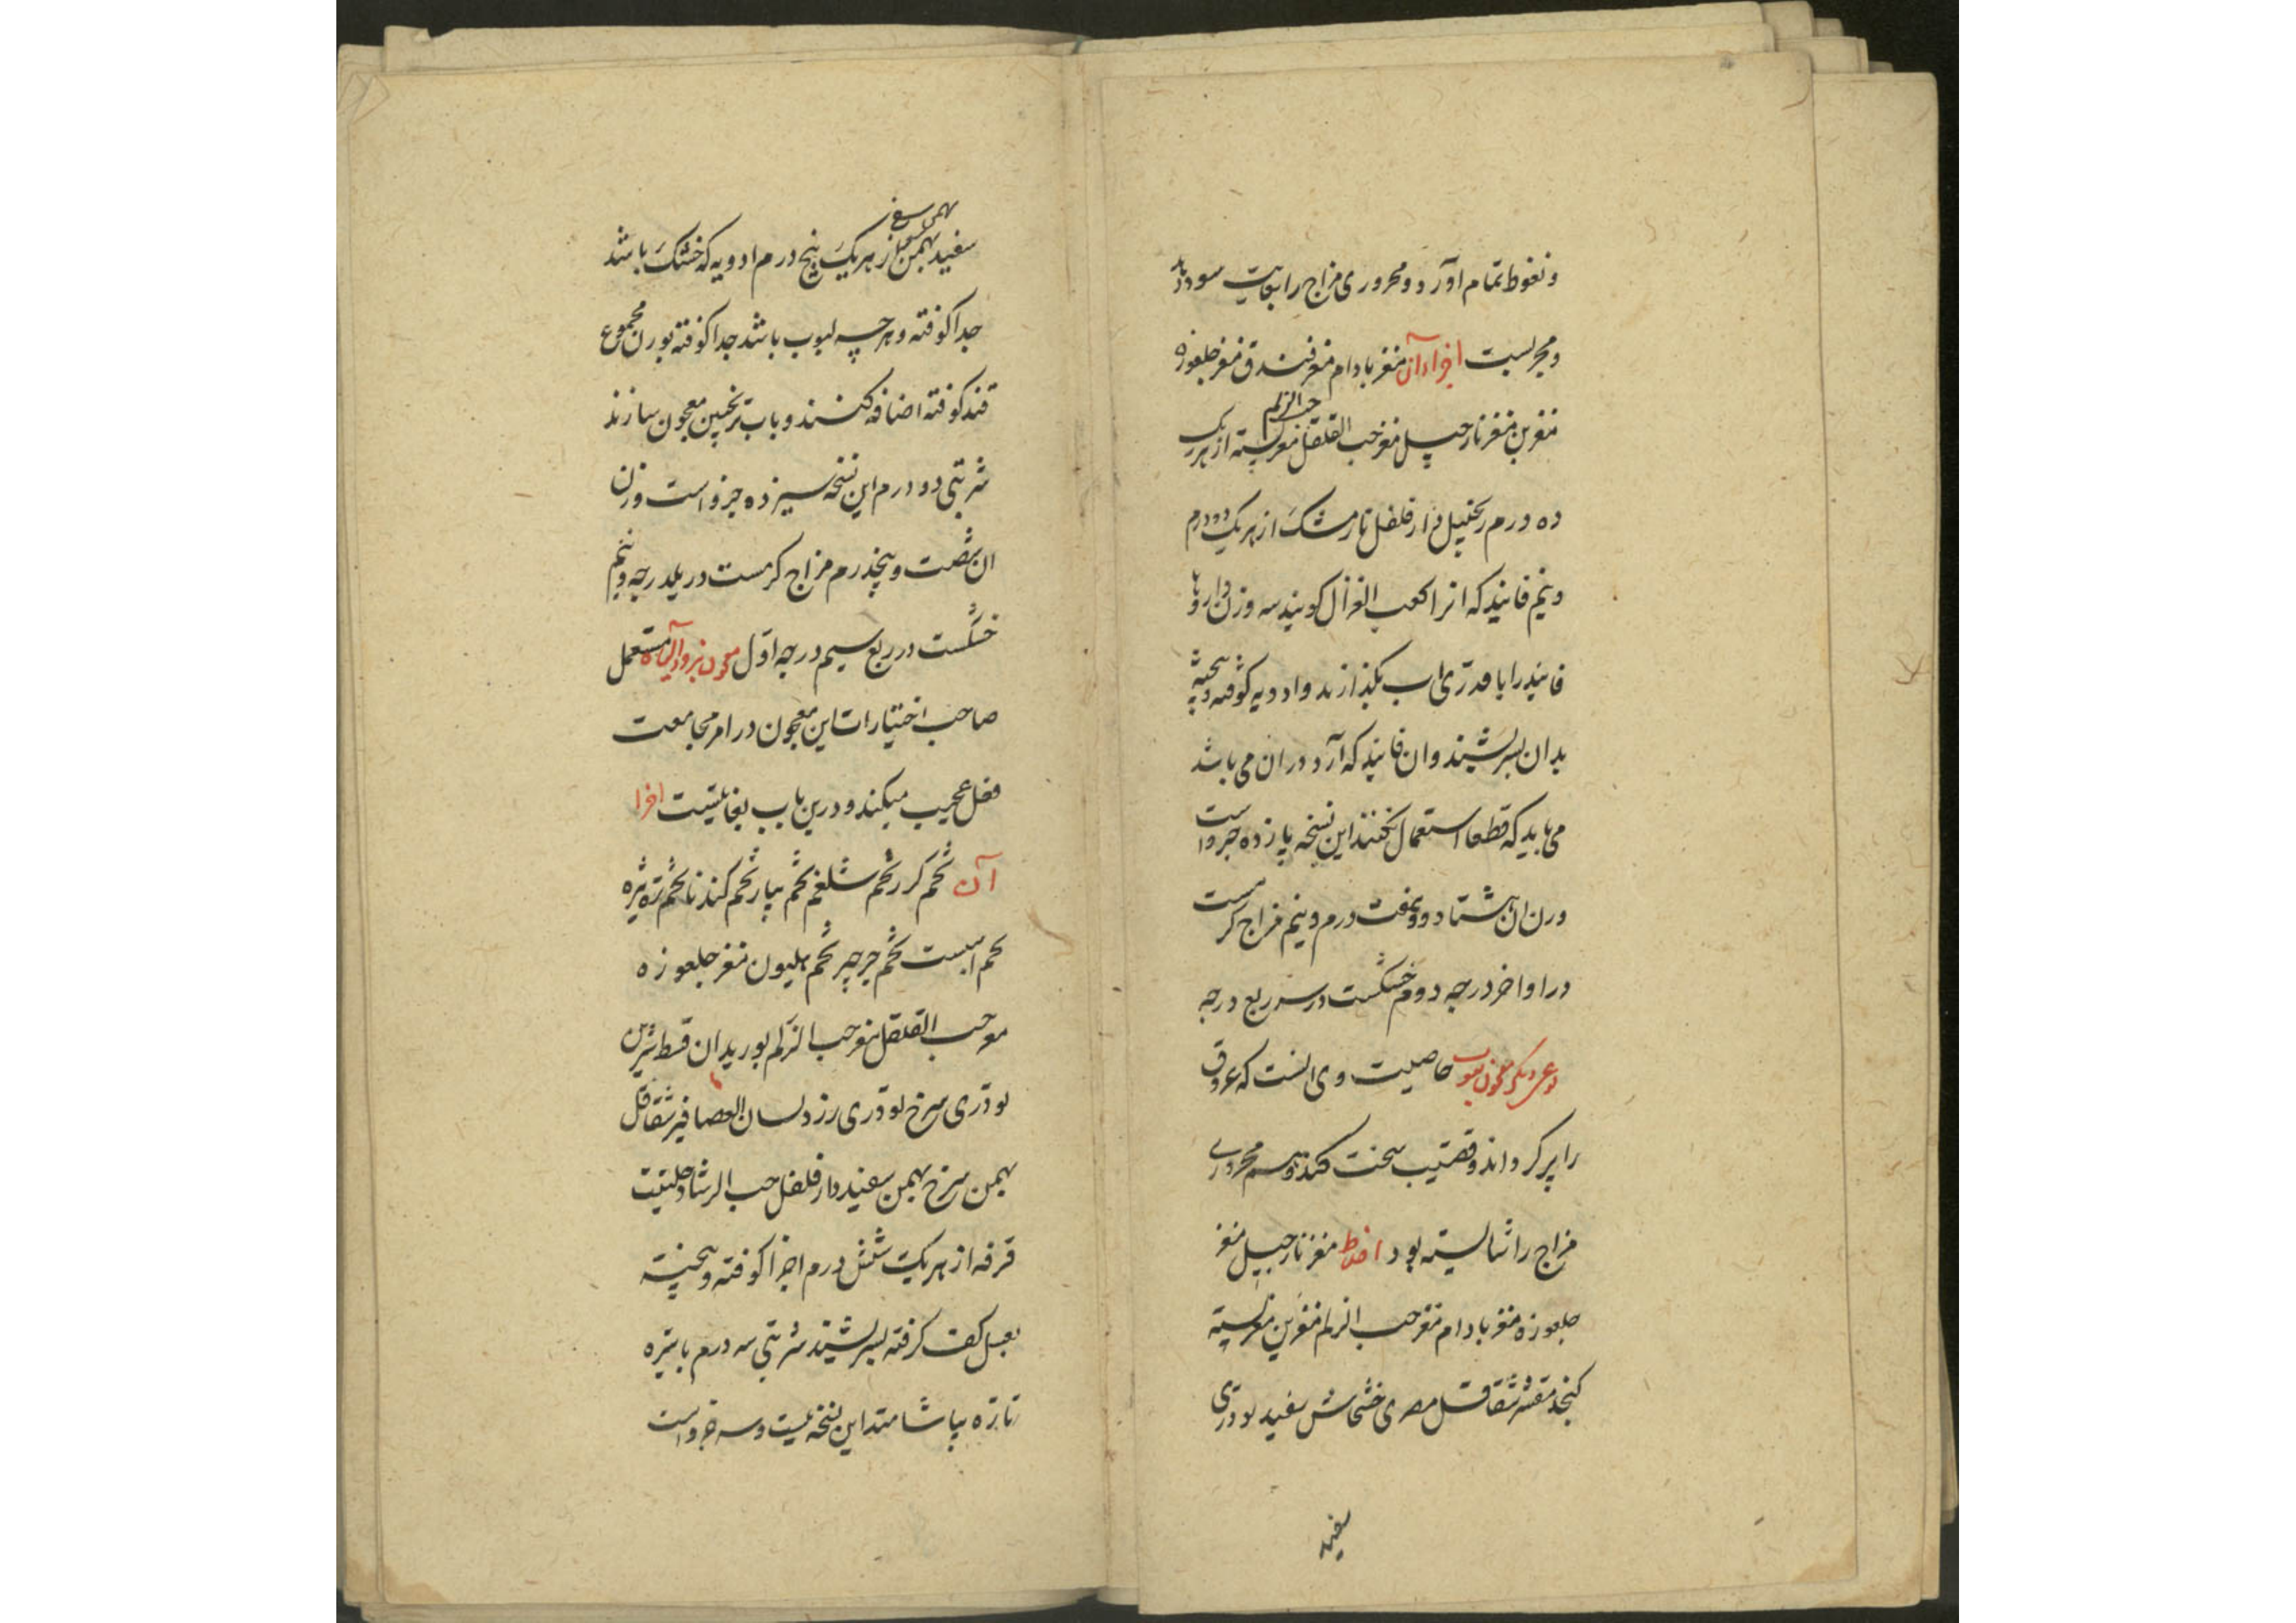 و نعوظ تمام آورد و محروری مزاج را بغایت سود دارد
و مجربست اجزاء آن مغز بادام مغز فندق مغز جلغوزه
مغز بن مغز نارجیل مغز حب القلقل حب الزلم مغز پسته از هر یک
ده درم زنجبیل دار فلفل نارمشک از هر یک دو درم
و نیم فانید که انرا کعب الغزال کویند سه وزن داروها
فانید را با قدری اب بکدازند و ادویه کوفته و بیخته
بدان بسرشند و ان فانید که آرد در ان می باشد
می باید که قطعا استعمال نکنند این نسخه یازده جزو است
وزن ان هشتاد و هفت درم و نیم مزاج کرمست
در اواخر درجه دوم خشکست در سه ربع درجه
نوعی دیکر معجون لبوب خاصیت وی انست که عروق
را پر کرداند و قضیب سخت کند و هم محروری
مزاج را شایسته بود اخلاط مغز نارجیل مغز
جلغوزه مغز بادام مغز حب الزلم مغز بن مغز پسته
کنجد مقشر شقاقل مصری خشخاش سفید تودری
سفید
سفید بهمن سفید از هر یک پنج درم ادویه که خشک باشد
جدا کوفته و هرچه لبوب باشد جدا کوفته بوزن مجموع
قند کوفته اضافه کنند و باب ترنجبین معجون سازند
شربتی دو درم این نسخه سیزده جزو است وزن
ان شصت و پنجدرم مزاج کرمست در یکدرجه و نیم
خشکست در ربع سیم درجه اول معجون بزور مستعمل
صاحب اختیارات این معجون در امر مجامعت
فعل عجیب میکند و درین باب بغایتست اجزا
آن تخم کزر تخم شلغم تخم پیاز تخم کندنا تخم تره تیزه
تخم اسپست تخم جرجیر تخم هلیون مغز جلغوزه
مغز حب القلقل مغز حب الزلم بوزیدان قسط شیرین
تودری سرخ تودری زرد لسان العصافیر شقاقل
بهمن سرخ بهمن سفید دار فلفل حب الرشاد حلتیت
قرفه از هر یک شش درم اجزا کوفته و بیخته
بعسل کف کرفته بسرشند شربتی سه درم با شیره
تازه بیاشامند این نسخه بیست و سه جزو است